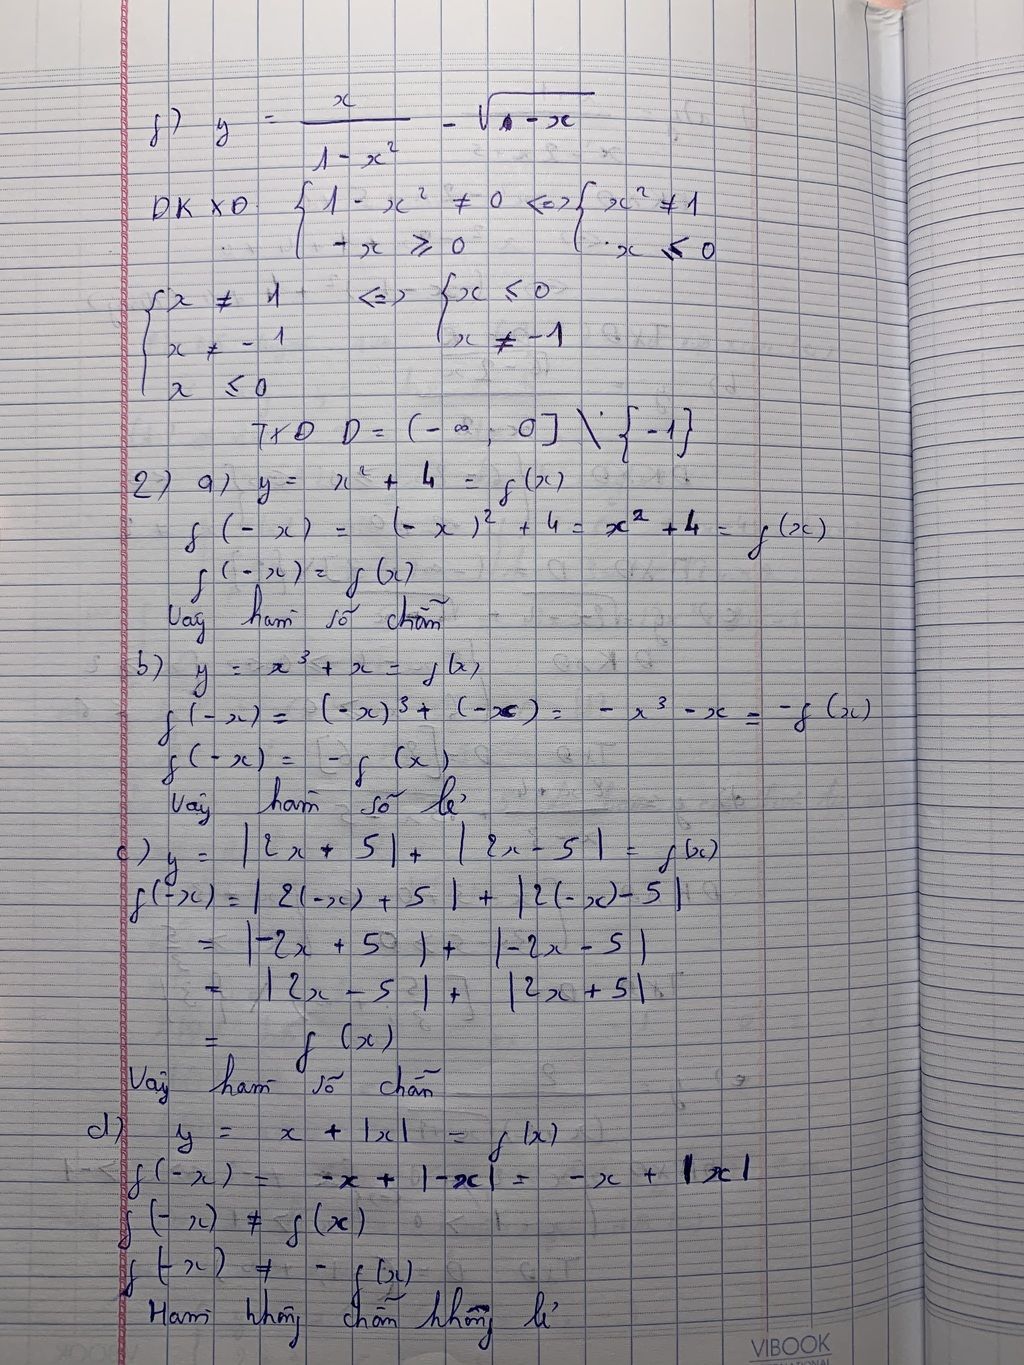 f) y = x / (1 - x²) - √(-x)
ĐKXĐ { 1 - x² ≠ 0 <=> { x² ≠ 1
-x ≥ 0 x ≤ 0
{ x ≠ 1 <=> { x ≤ 0
x ≠ -1 x ≠ -1
x ≤ 0
TXĐ D = (-∞; 0] \ {-1}
2) a) y = x² + 4 = f(x)
f(-x) = (-x)² + 4 = x² + 4 = f(x)
f(-x) = f(x)
Vậy hàm số chẵn
b) y = x³ + x = f(x)
f(-x) = (-x)³ + (-x) = -x³ - x = -f(x)
f(-x) = -f(x)
Vậy hàm số lẻ
c) y = |2x + 5| + |2x - 5| = f(x)
f(-x) = |2(-x) + 5| + |2(-x) - 5|
= |-2x + 5| + |-2x - 5|
= |2x - 5| + |2x + 5|
= f(x)
Vậy hàm số chẵn
d) y = x + |x| = f(x)
f(-x) = -x + |-x| = -x + |x|
f(-x) ≠ f(x)
f(-x) ≠ -f(x)
Hàm không chẵn không lẻ
VIBOOK